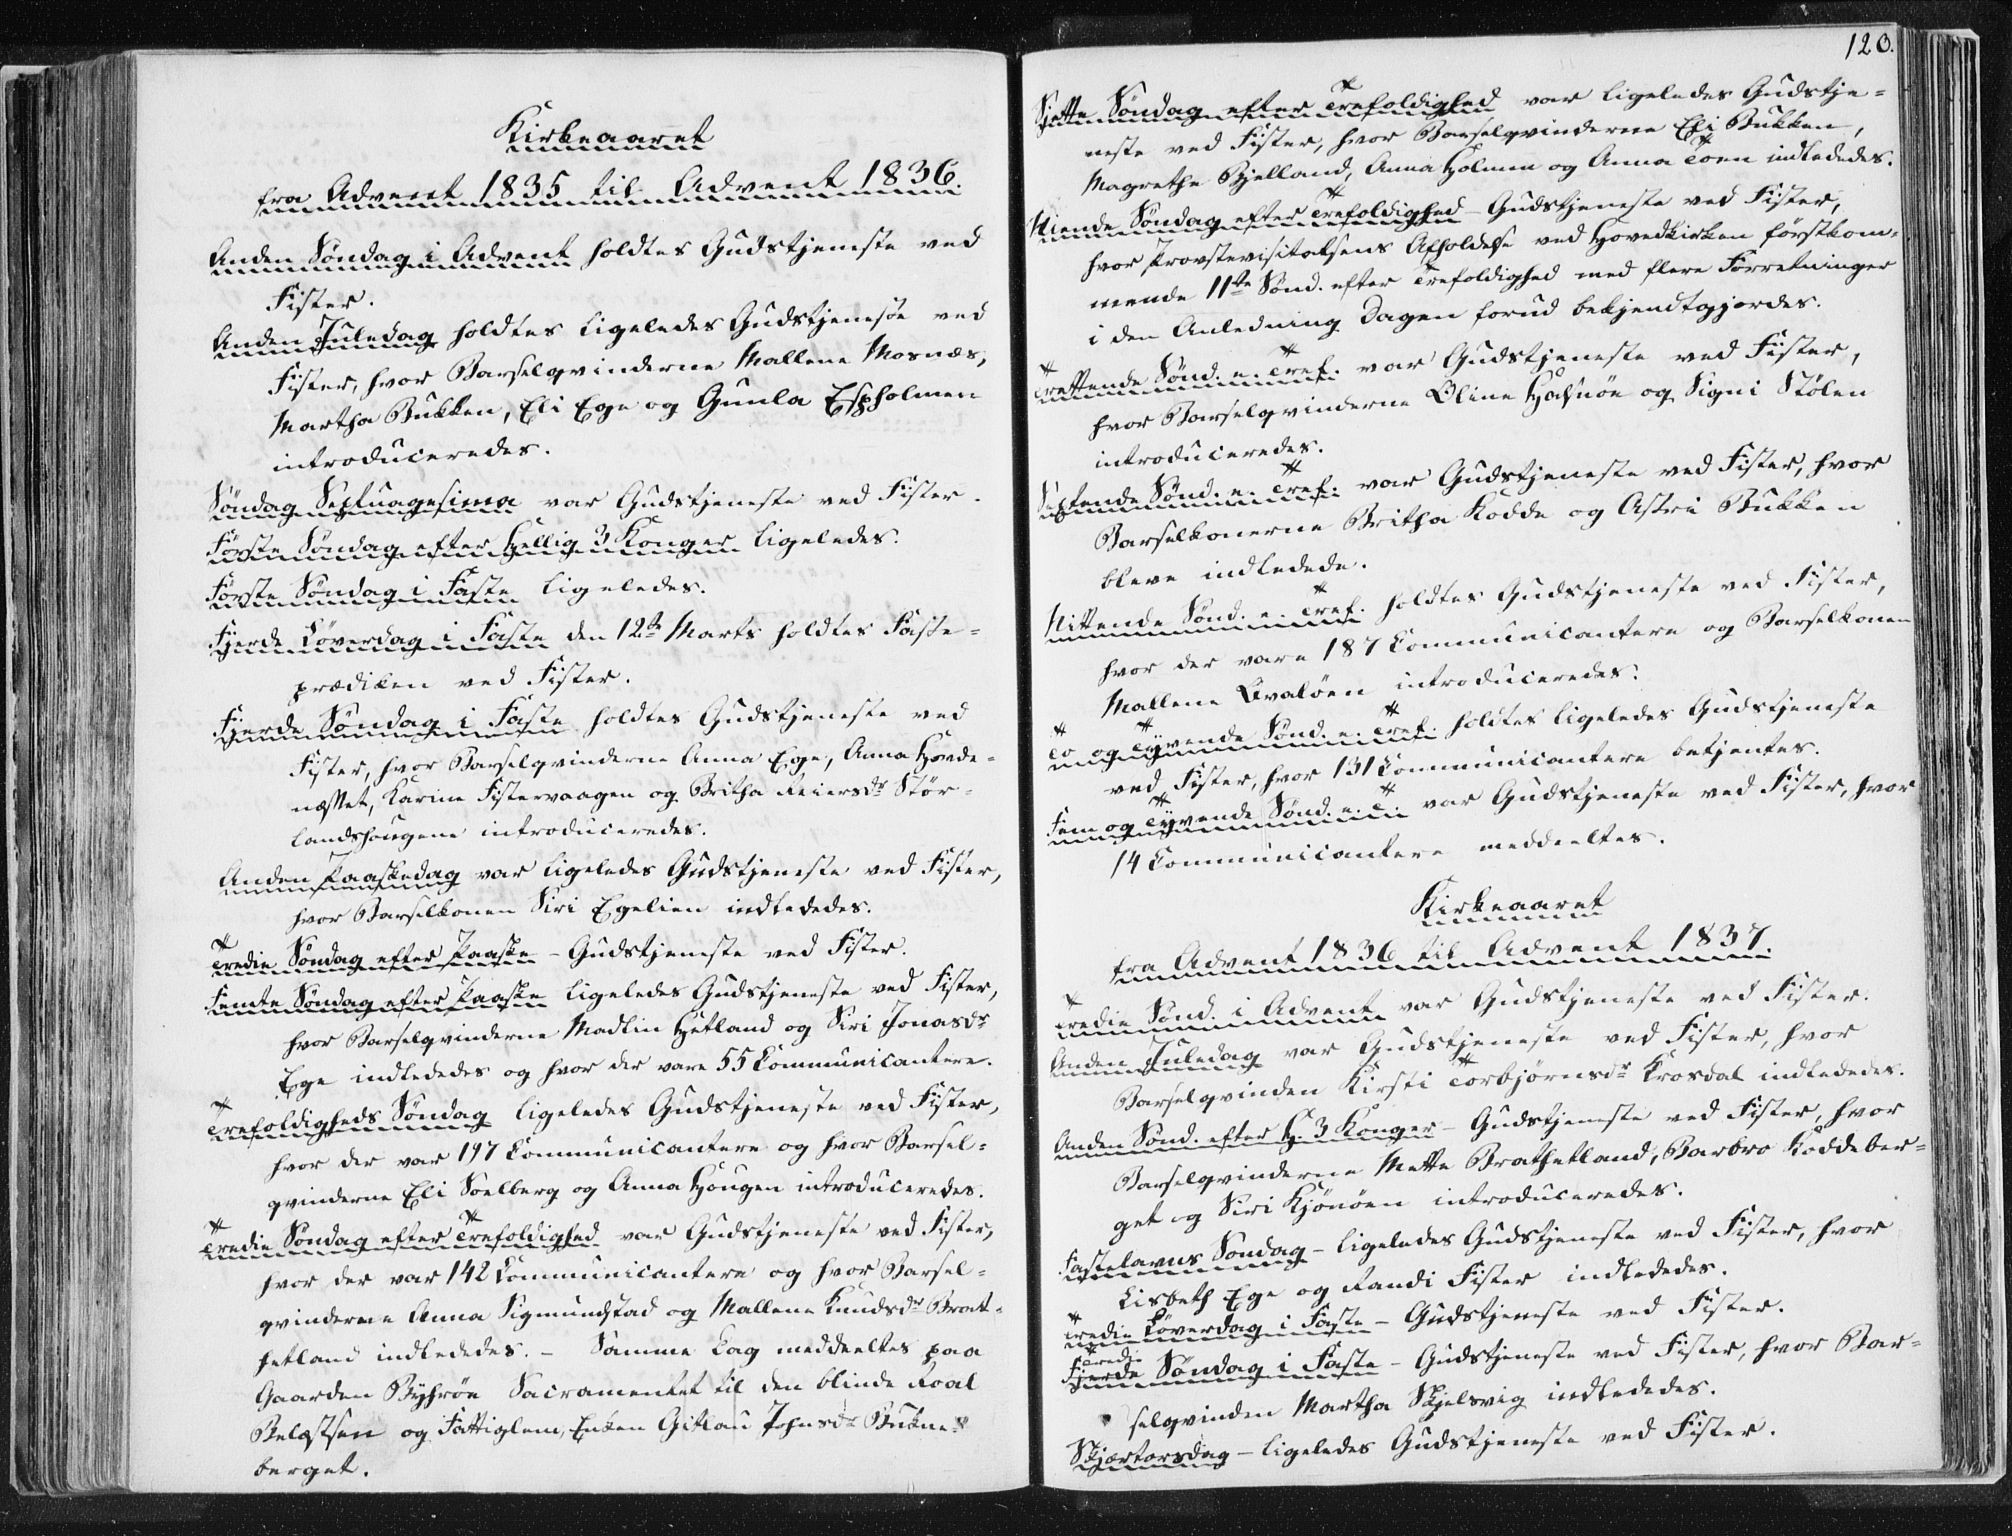 Kirkeaaret
fra Advent 1835 til Advent 1836.
Anden Søndag i Advent holdtes Gudstjeneste ved
Fister.
Anden Juledag holdtes ligeledes Gudstjeneste ved
Fister, hvor Barselqvinderne Mallene Mosnæs,
Martha Bukken, Eli Ege og Gunla Espholmen
introduceredes.
Søndag Septuagesima var Gudstjeneste ved Fister.
Første Søndag efter Hellig 3 Konger ligeledes.
Første Søndag i Faste ligeledes.
Fjerde Løverdag i Faste den 12te Marts holdtes Faste-
prædiken ved Fister.
Fjerde Søndag i Faste holdtes Gudstjeneste ved
Fister, hvor Barselqvinderne Anna Ege, Anna Hovde-
næsset, Karine Fistervaagen og Britha Reiersdr Stør-
landshougene introduceredes.
Anden Paaskedag var ligeledes Gudstjeneste ved Fister,
hvor Barselkonen Siri Egelien indlededes.
Tredie Søndag efter Paaske - Gudstjeneste ved Fister.
Femte Søndag efter Paaske ligeledes Gudstjeneste ved Fister,
hvor Barselqvinderne Madlin Hetland og Siri Jonasdr
Ege indlededes og hvor der vare 55 Communicantere.
Trefoldigheds Søndag ligeledes Gudstjeneste ved Fister,
hvor der var 197 Communicantere og hvor Barsel-
qvinderne Eli Soelberg og Anna Hougen introduceredes.
Tredie Søndag efter Trefoldighed var Gudstjeneste ved Fister,
hvor der var 142 Communicantere og hvor Barsel-
qvinderne Anna Sigmundstad og Mallene Knudsdr Brat-
hetland indlededes. - Samme Dag meddeeltes paa
Gaarden Byhrøe Sacramentet til den blinde Roal
og Fattiglem, Enken Gitlau Johnsdr Bukne-
berget.
120.
Sjette Søndag efter Trefoldighed var ligeledes Gudstje-
neste ved Fister, hvor Barselqvinderne Eli Bukken,
Magrethe Bjelland, Anna Holmen og Anna Toen indlededes.
Niende Søndag efter Trefoldighed - Gudstjeneste ved Fister,
hvor Provstevisitatsens Afholdelse ved Hovedkirken førstkom-
mende 11te Sønd. efter Trefoldighed med flere Forretninger
i den Anledning Dagen forud bekjendtgjordes.
Trettende Sønd. e. Tref. var Gudstjeneste ved Fister,
hvor Barselqvinderne Oline Halsnøe og Signi Stølen
introduceredes.
Syttende Sønd. e. Tref. var Gudstjeneste ved Fister, hvor
Barselkonerne Britha Kodde og Astri Bukken
bleve indledede.
Nittende Sønd. e. Tref. holdtes Gudstjeneste ved Fister,
hvor der vare 187 Communicantere og Barselkonen
Mallene Qvaløen introduceredes.
To og Tyvende Sønd. e. Tref. holdtes ligeledes Gudstjeneste
ved Fister, hvor 131 Communicantere betjentes.
Fem og Tyvende Sønd. e. T. var Gudstjeneste ved Fister, hvor
14 Communicantere meddeeltes.
Kirkeaaret
fra Advent 1836 til Advent 1837.
Tredie Sønd. i Advent var Gudstjeneste ved Fister.
Anden Juledag var Gudstjeneste ved Fister, hvor
Barselqvinden Kirsti Torbjørnsdr Krosdal indlededes.
Anden Sønd. efter H. 3 Konger - Gudstjeneste ved Fister, hvor
Barselqvinderne Mette Brathetland, Barbro Koddeber-
get og Siri Kjønøen introduceredes.
Fastelavns Søndag - ligeledes Gudstjeneste ved Fister, hvor
Lisbeth Ege og Randi Fister indlededes.
Tredie Løverdag i Faste - Gudstjeneste ved Fister.
Tredie
Fjerde Søndag i Faste - Gudstjeneste ved Fister, hvor Bar-
selqvinden Martha Skjelsvig indlededes.
Skjærtorsdag - ligeledes Gudstjeneste ved Fister.